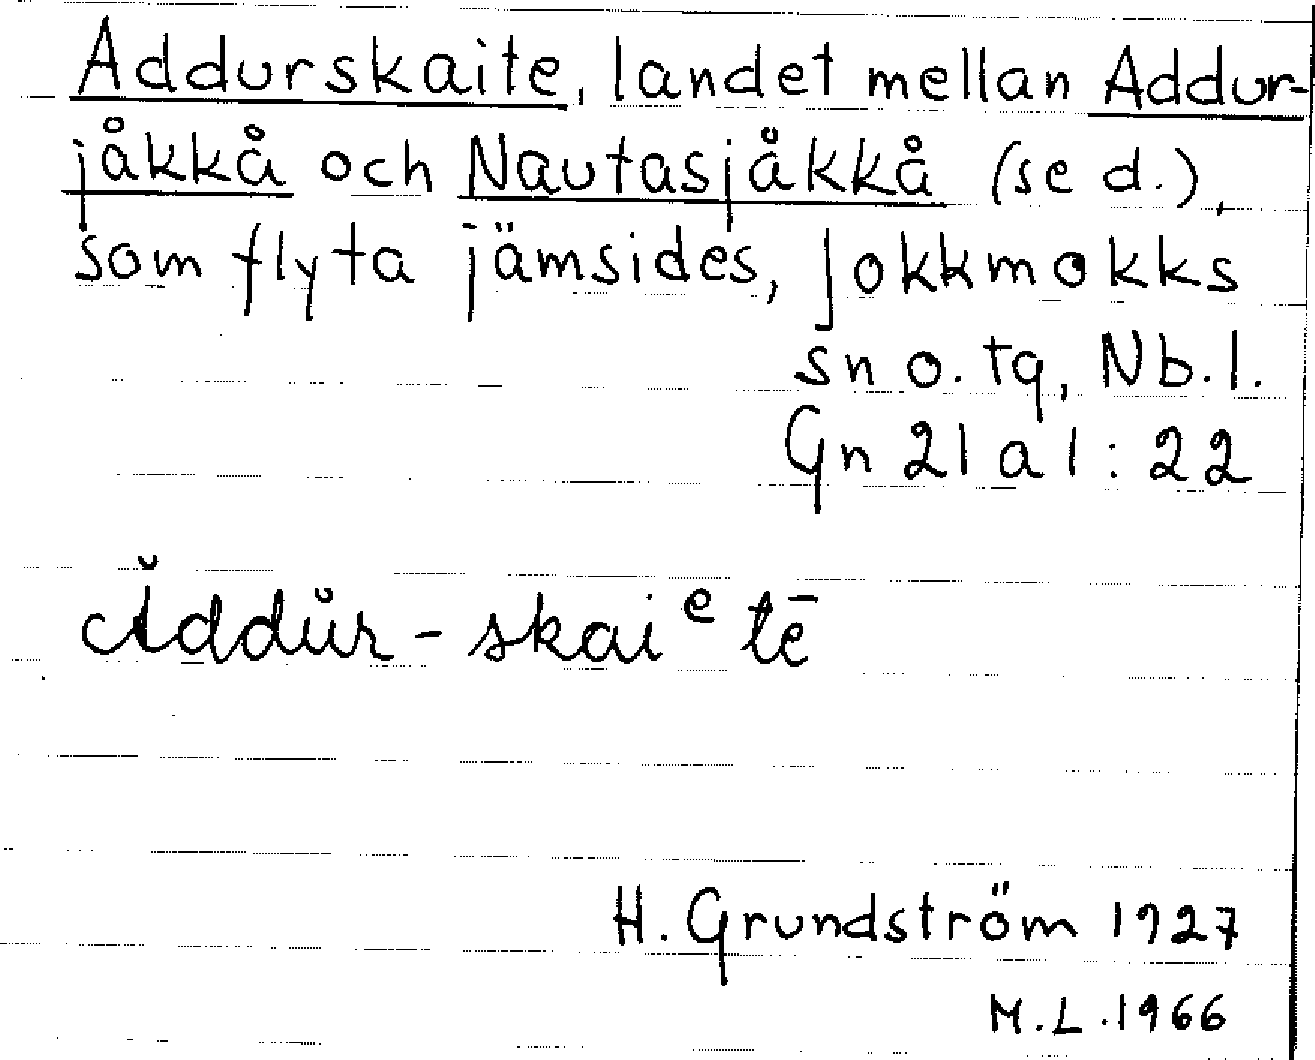 Addurskaite, landet mellan Addur-
jåkkå och Nautasjåkkå (se d.),
som flyta jämsides, Jokkmokks
sn o. tg, Nb.l.
Gn 21 a 1 : 22
Ăddŭr - skaiᵉtē
H. Grundström 1927
M.L. 1966